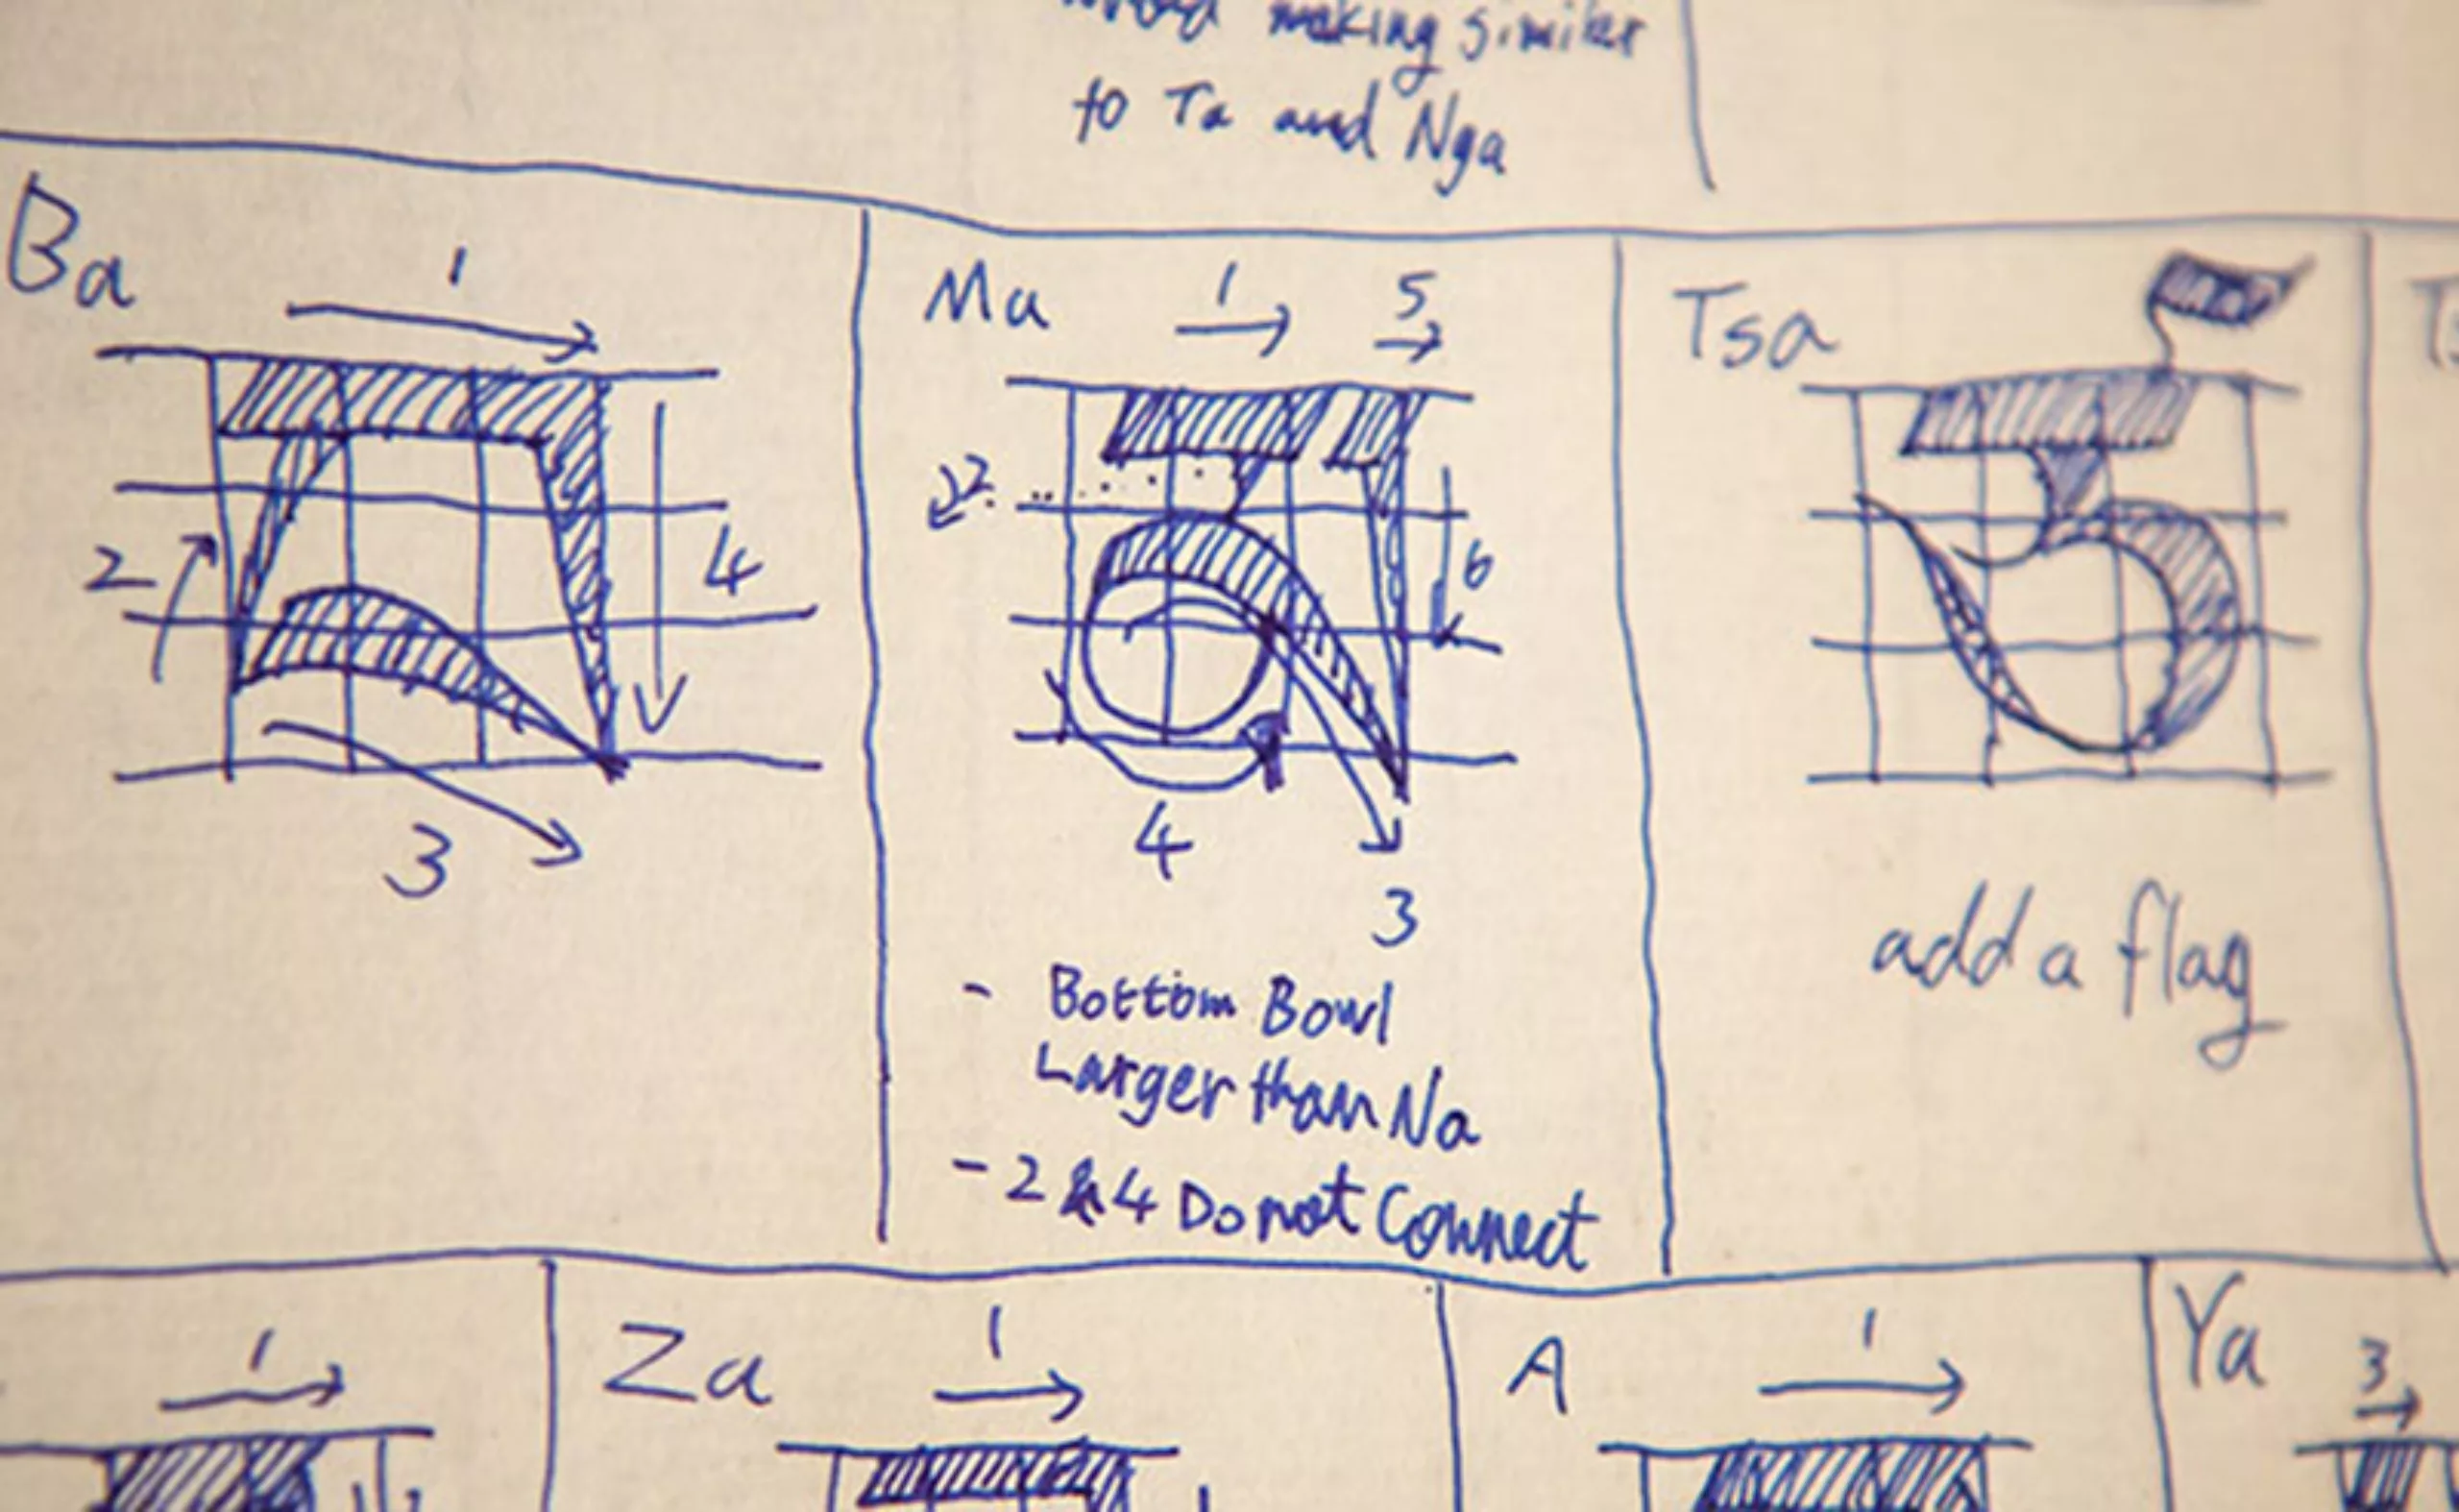 making similar
to Ta and Nga
Ba
1
2
4
3
Ma
1
5
2
6
4
3
- Bottom Bowl
Larger than Na
- 2 & 4 Do not Connect
Tsa
add a flag
1
Za
1
A
1
Ya
3